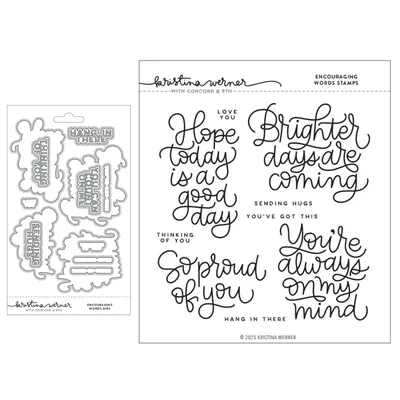 HANG IN
THERE
THINKING
OF YOU
SENDING
HUGS
kristina werner
WITH CONCORD & 9TH
ENCOURAGING
WORDS DIES
kristina werner
WITH CONCORD & 9TH
ENCOURAGING
WORDS STAMPS
LOVE
YOU
Hope
today
is a
good
day
Brighter
days are
coming
SENDING HUGS
YOU'VE GOT THIS
THINKING
OF YOU
So proud
of you
You're
always
on my
mind
HANG IN THERE
© 2025 KRISTINA WERNER